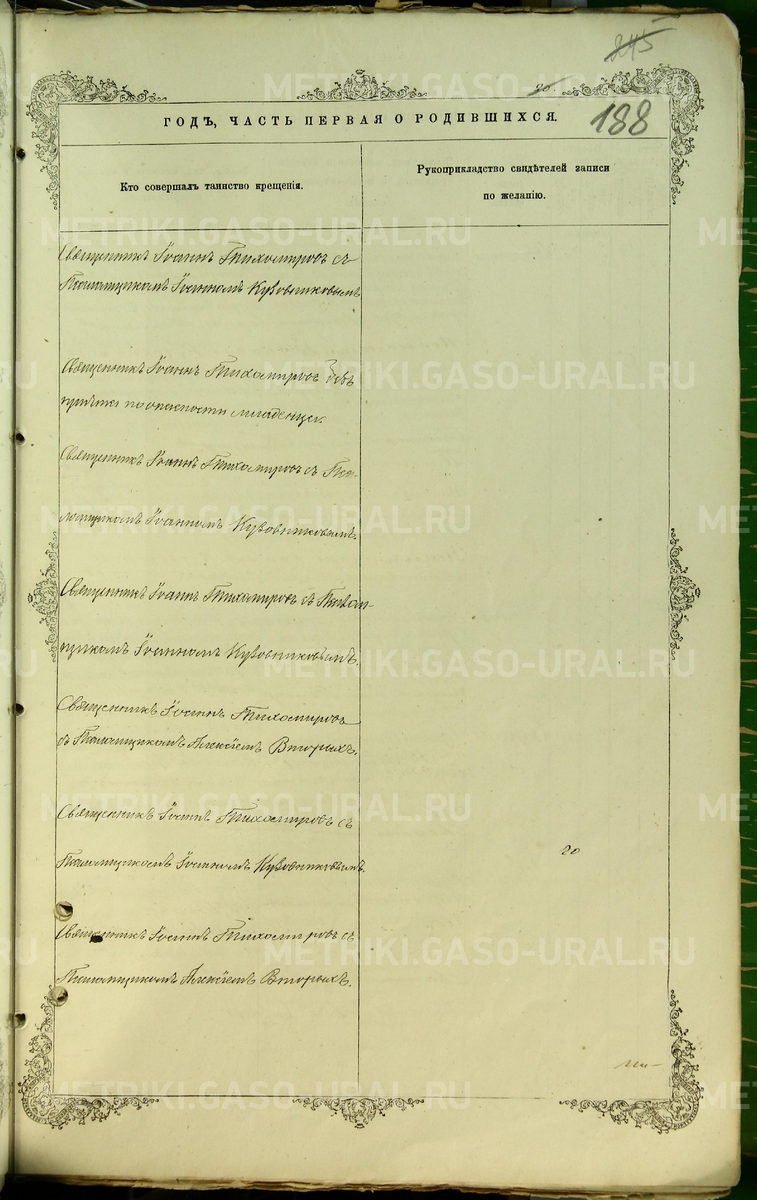 245
20.
188
ГОДЪ, ЧАСТЬ ПЕРВАЯ О РОДИВШИХСЯ.
Кто совершалъ таинство крещенія.
Рукоприкладство свидѣтелей записи
по желанію.
Священникъ Іоаннъ Тихомировъ съ
Іоанномъ Кузовниковымъ
Священникъ Іоаннъ Тихомировъ безъ
причта по опасности младенца.
Священникъ Іоаннъ Тихомировъ съ По-
ломщикомъ Іоанномъ Кузовниковымъ.
Священникъ Іоаннъ Тихомировъ съ
Іоанномъ Кузовниковымъ.
Священникъ Іоаннъ Тихомировъ
съ Паламщикомъ Алексіемъ Вторыхъ.
Священникъ Іоаннъ Тихомировъ съ
Паламщикомъ Іоанномъ Кузовниковымъ.
20
Священникъ Іоаннъ Тихомировъ съ
Паламщикомъ Алексіемъ Вторыхъ.
METRIKI.GASO-URAL.RU